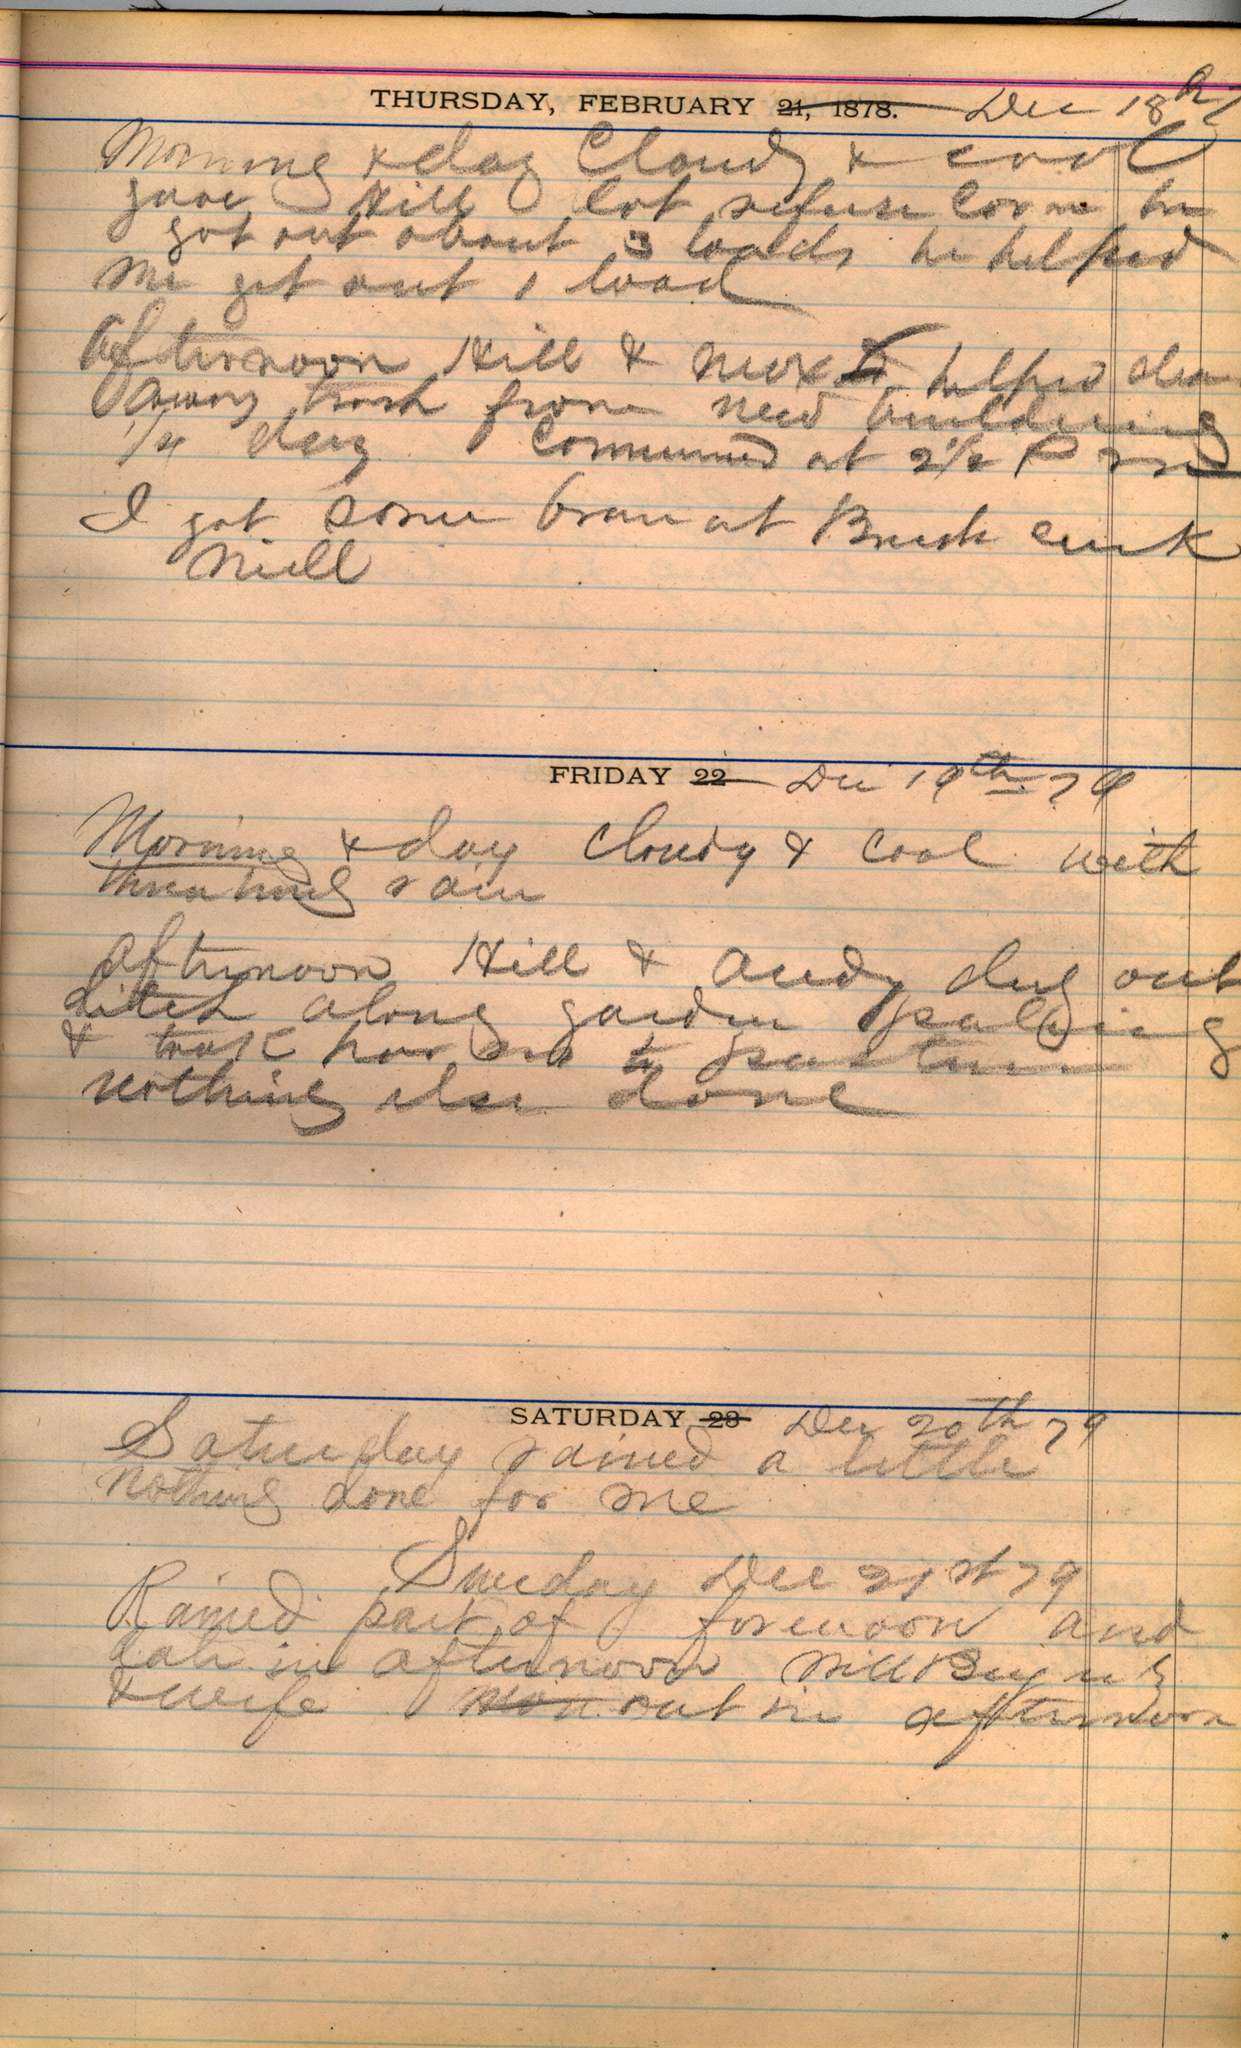 THURSDAY, FEBRUARY 21, 1878. Dec 18th
Morning & day Cloudy & cool
gave Hill lot refuse corn he
got out about 3 loads he helped
me get out 1 load
Afternoon Hill & helped clean
away trash from new building
1/4 day Commenced at 2 1/2 P m
I got some bran at Brush creek
Mill
FRIDAY 22 Dec 19th 79
Morning & day cloudy & cool with
threatning rain
afternoon Hill & Andy dug out
ditch along garden paling
& took horses to pasture
nothing else done
SATURDAY 23 Dec 20th 79
Saturday rained a little
nothing done for me
Sunday Dec 21st 79
Rained part of forenoon and
late in afternoon Will
& wife out in afternoon